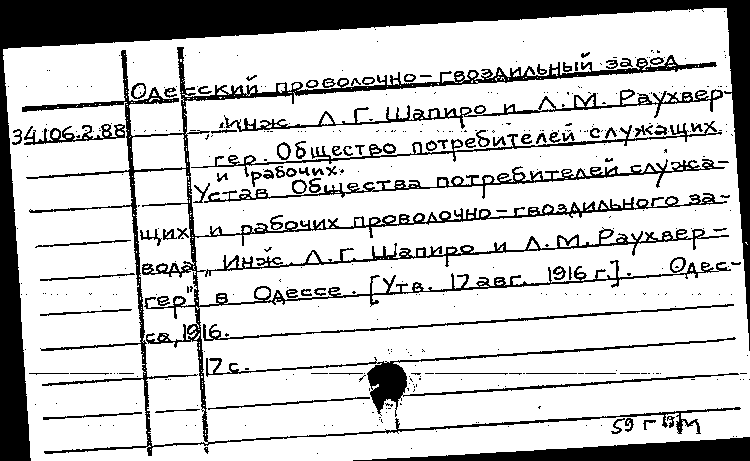 Одесский проволочно-гвоздильный завод
34.106.2.88 „Инж. Л.Г. Шапиро и Л.М. Раухвер-
гер. Общество потребителей служащих
и рабочих.
Устав Общества потребителей служа-
щих и рабочих проволочно-гвоздильного за-
вода „Инж. Л.Г. Шапиро и Л.М. Раухвер-
гер" в Одессе. [Утв. 17 авг. 1916 г.]. Одес-
са, 1916.
17 с.